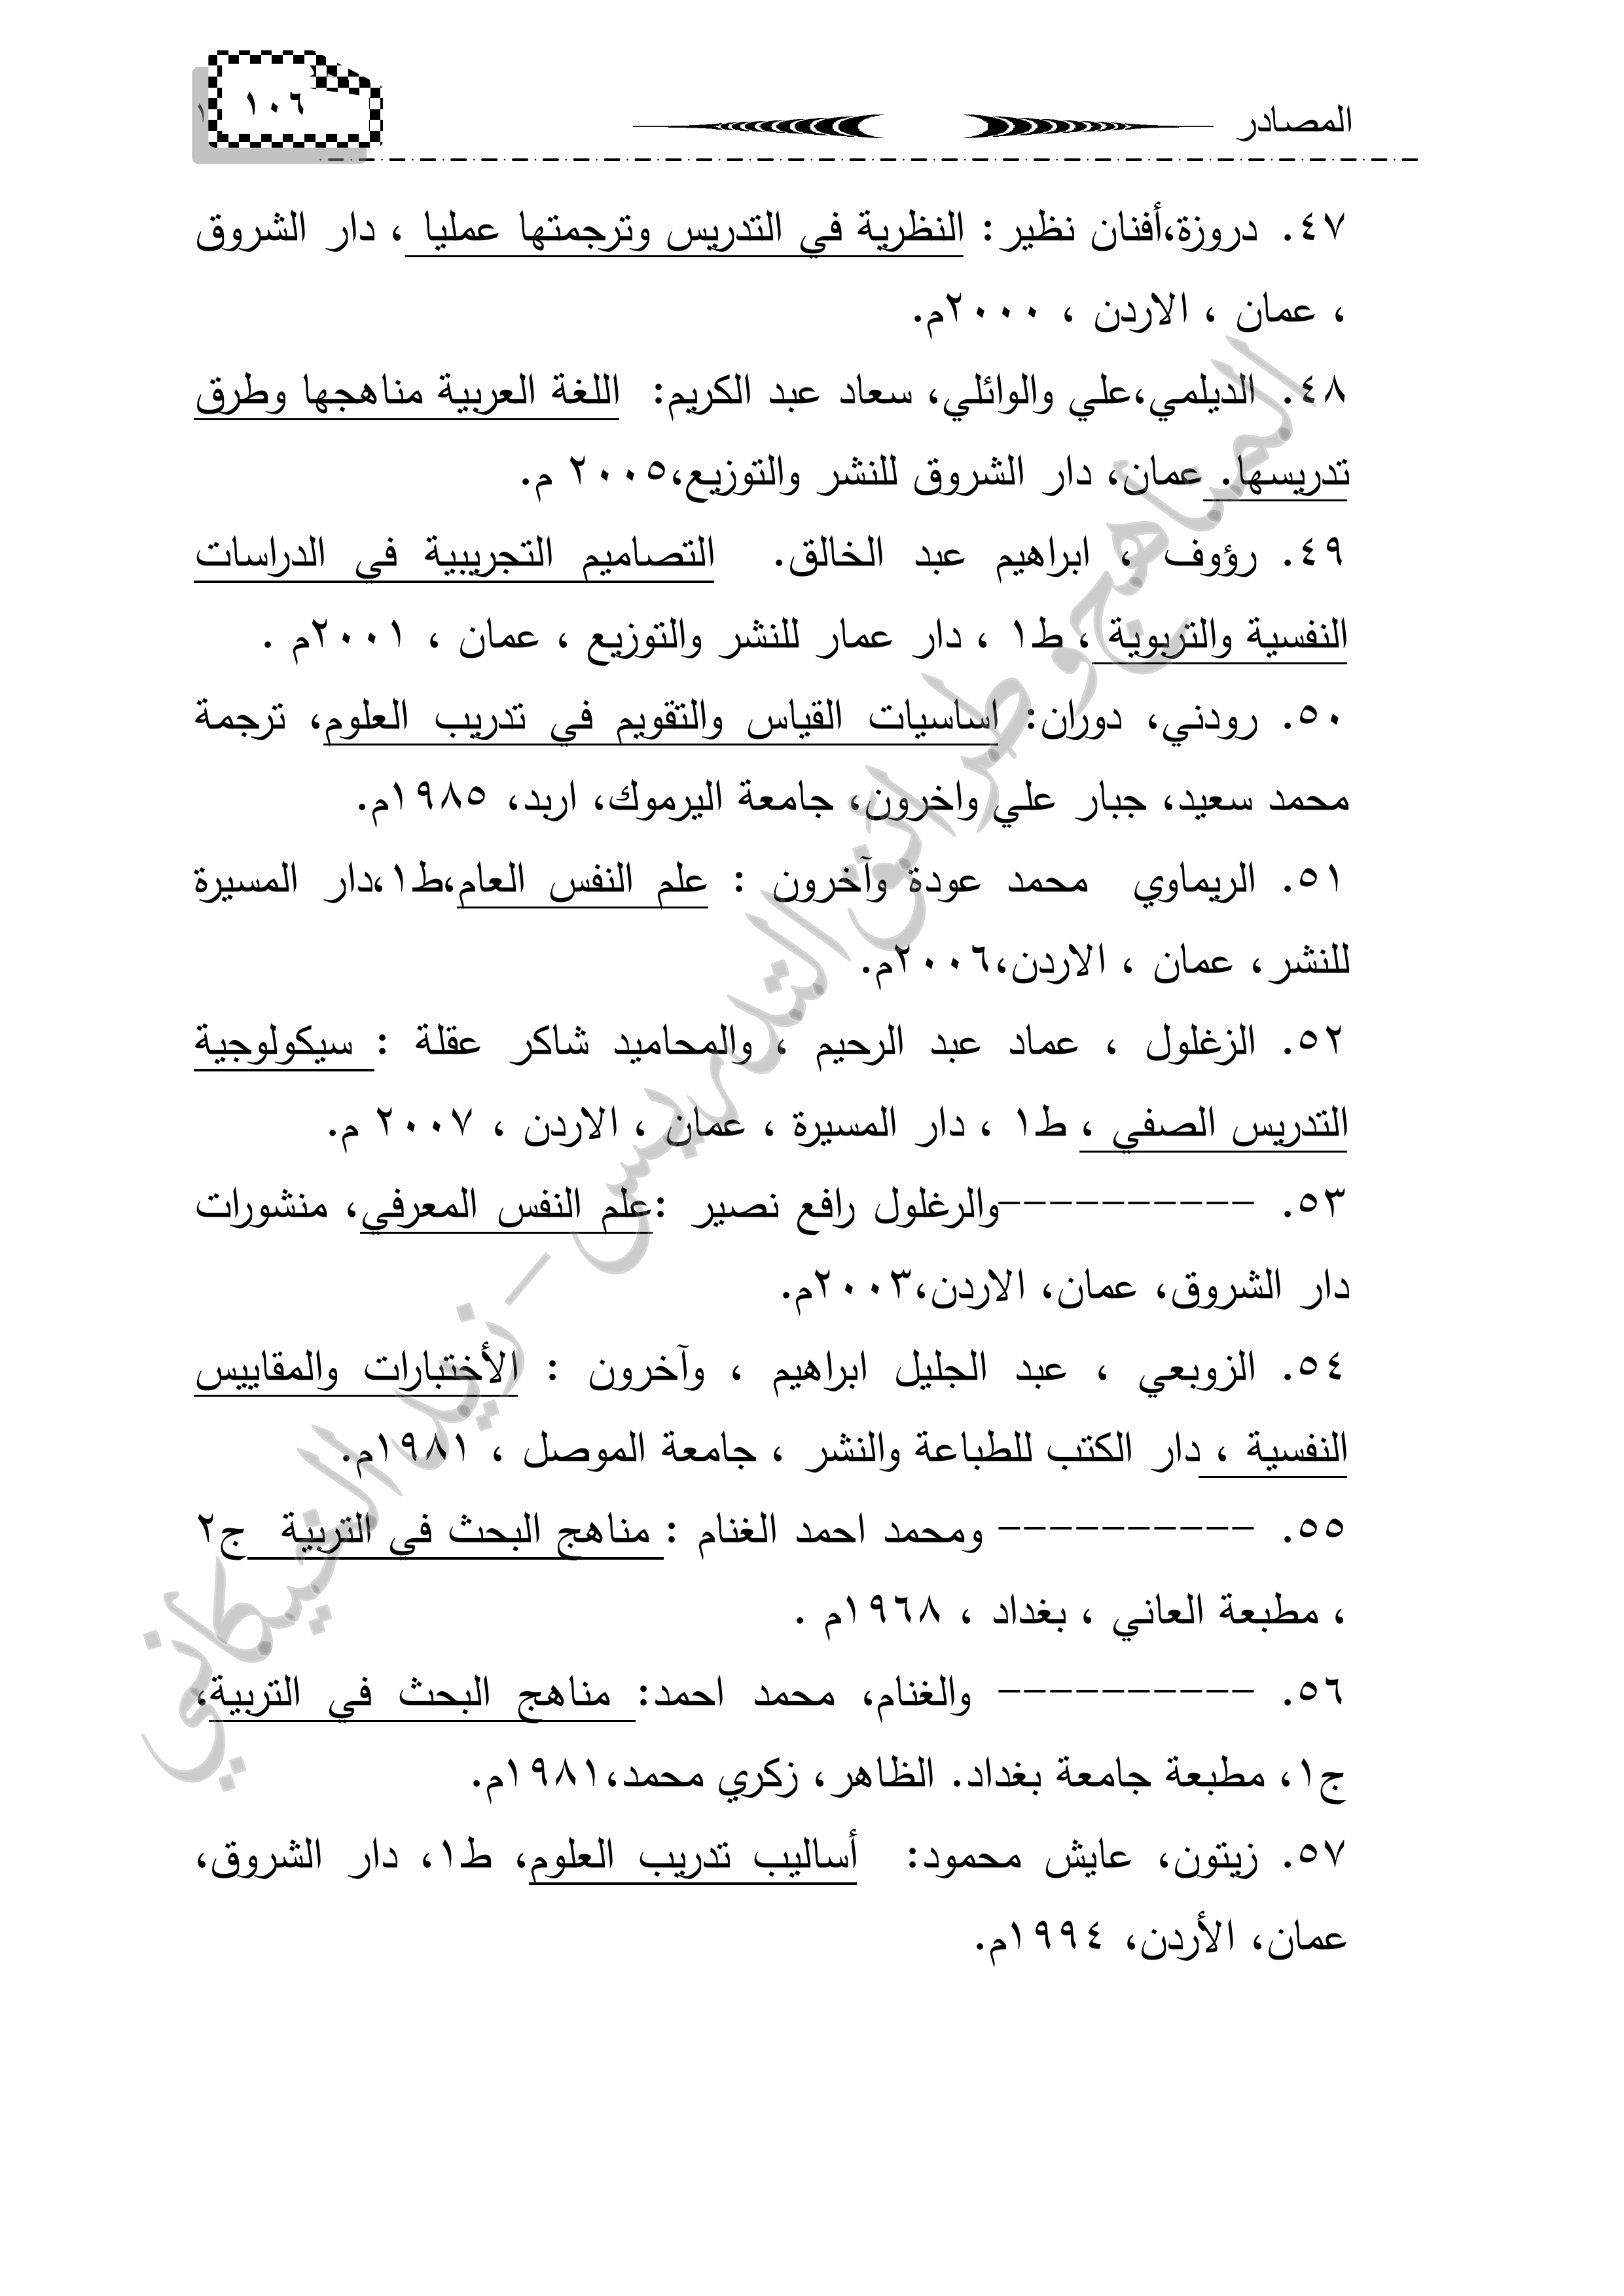 المصادر
١٠٦
٤٧. دروزة،أفنان نظير: النظرية في التدريس وترجمتها عمليا ، دار الشروق
، عمان ، الاردن ، ٢٠٠٠م.
٤٨. الديلمي،علي والوائلي، سعاد عبد الكريم: اللغة العربية مناهجها وطرق
تدريسها. عمان، دار الشروق للنشر والتوزيع،٢٠٠٥ م.
٤٩. رؤوف ، ابراهيم عبد الخالق. التصاميم التجريبية في الدراسات
النفسية والتربوية ، ط١ ، دار عمار للنشر والتوزيع ، عمان ، ٢٠٠١م .
٥٠. رودني، دوران: اساسيات القياس والتقويم في تدريب العلوم، ترجمة
محمد سعيد، جبار علي واخرون، جامعة اليرموك، اربد، ١٩٨٥م.
٥١. الريماوي محمد عودة وآخرون : علم النفس العام،ط١،دار المسيرة
للنشر، عمان ، الاردن،٢٠٠٦م.
٥٢. الزغلول ، عماد عبد الرحيم ، والمحاميد شاكر عقلة : سيكولوجية
التدريس الصفي ، ط١ ، دار المسيرة ، عمان ، الاردن ، ٢٠٠٧ م.
٥٣. ----------والرغلول رافع نصير :علم النفس المعرفي، منشورات
دار الشروق، عمان، الاردن،٢٠٠٣م.
٥٤. الزوبعي ، عبد الجليل ابراهيم ، وآخرون : الأختبارات والمقاييس
النفسية ، دار الكتب للطباعة والنشر ، جامعة الموصل ، ١٩٨١م.
٥٥. ---------- ومحمد احمد الغنام : مناهج البحث في التربية ج٢
، مطبعة العاني ، بغداد ، ١٩٦٨م .
٥٦. ---------- والغنام، محمد احمد: مناهج البحث في التربية،
ج١، مطبعة جامعة بغداد. الظاهر، زكري محمد،١٩٨١م.
٥٧. زيتون، عايش محمود: أساليب تدريب العلوم، ط١، دار الشروق،
عمان، الأردن، ١٩٩٤م.
المناهج وطرائق التدريس - زيد الخيكاني